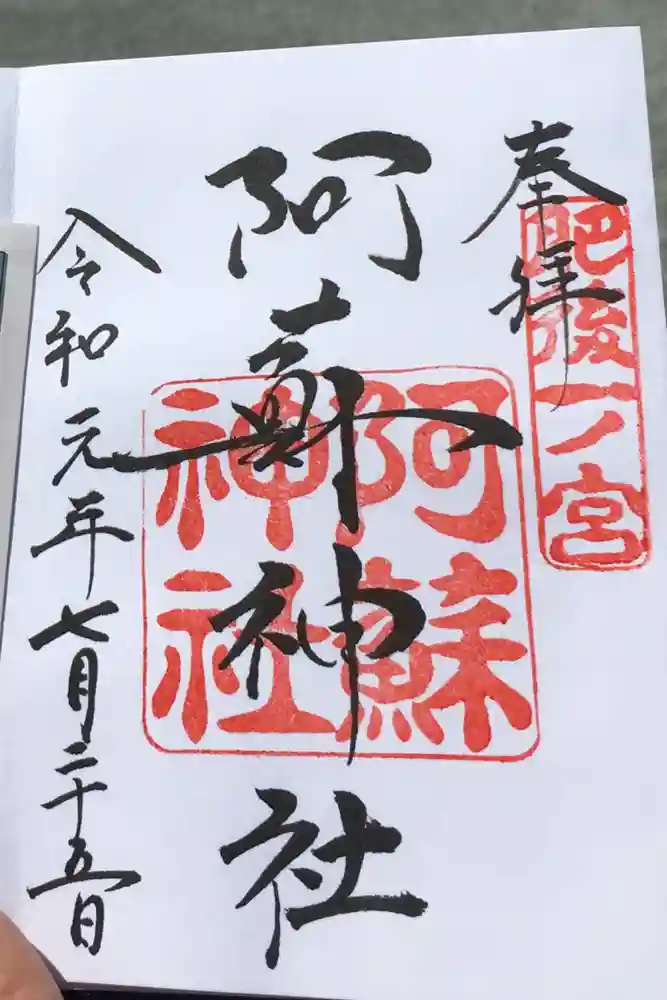 奉拝
肥後一ノ宮
阿蘇神社
阿蘇
神社
令和元年七月二十五日